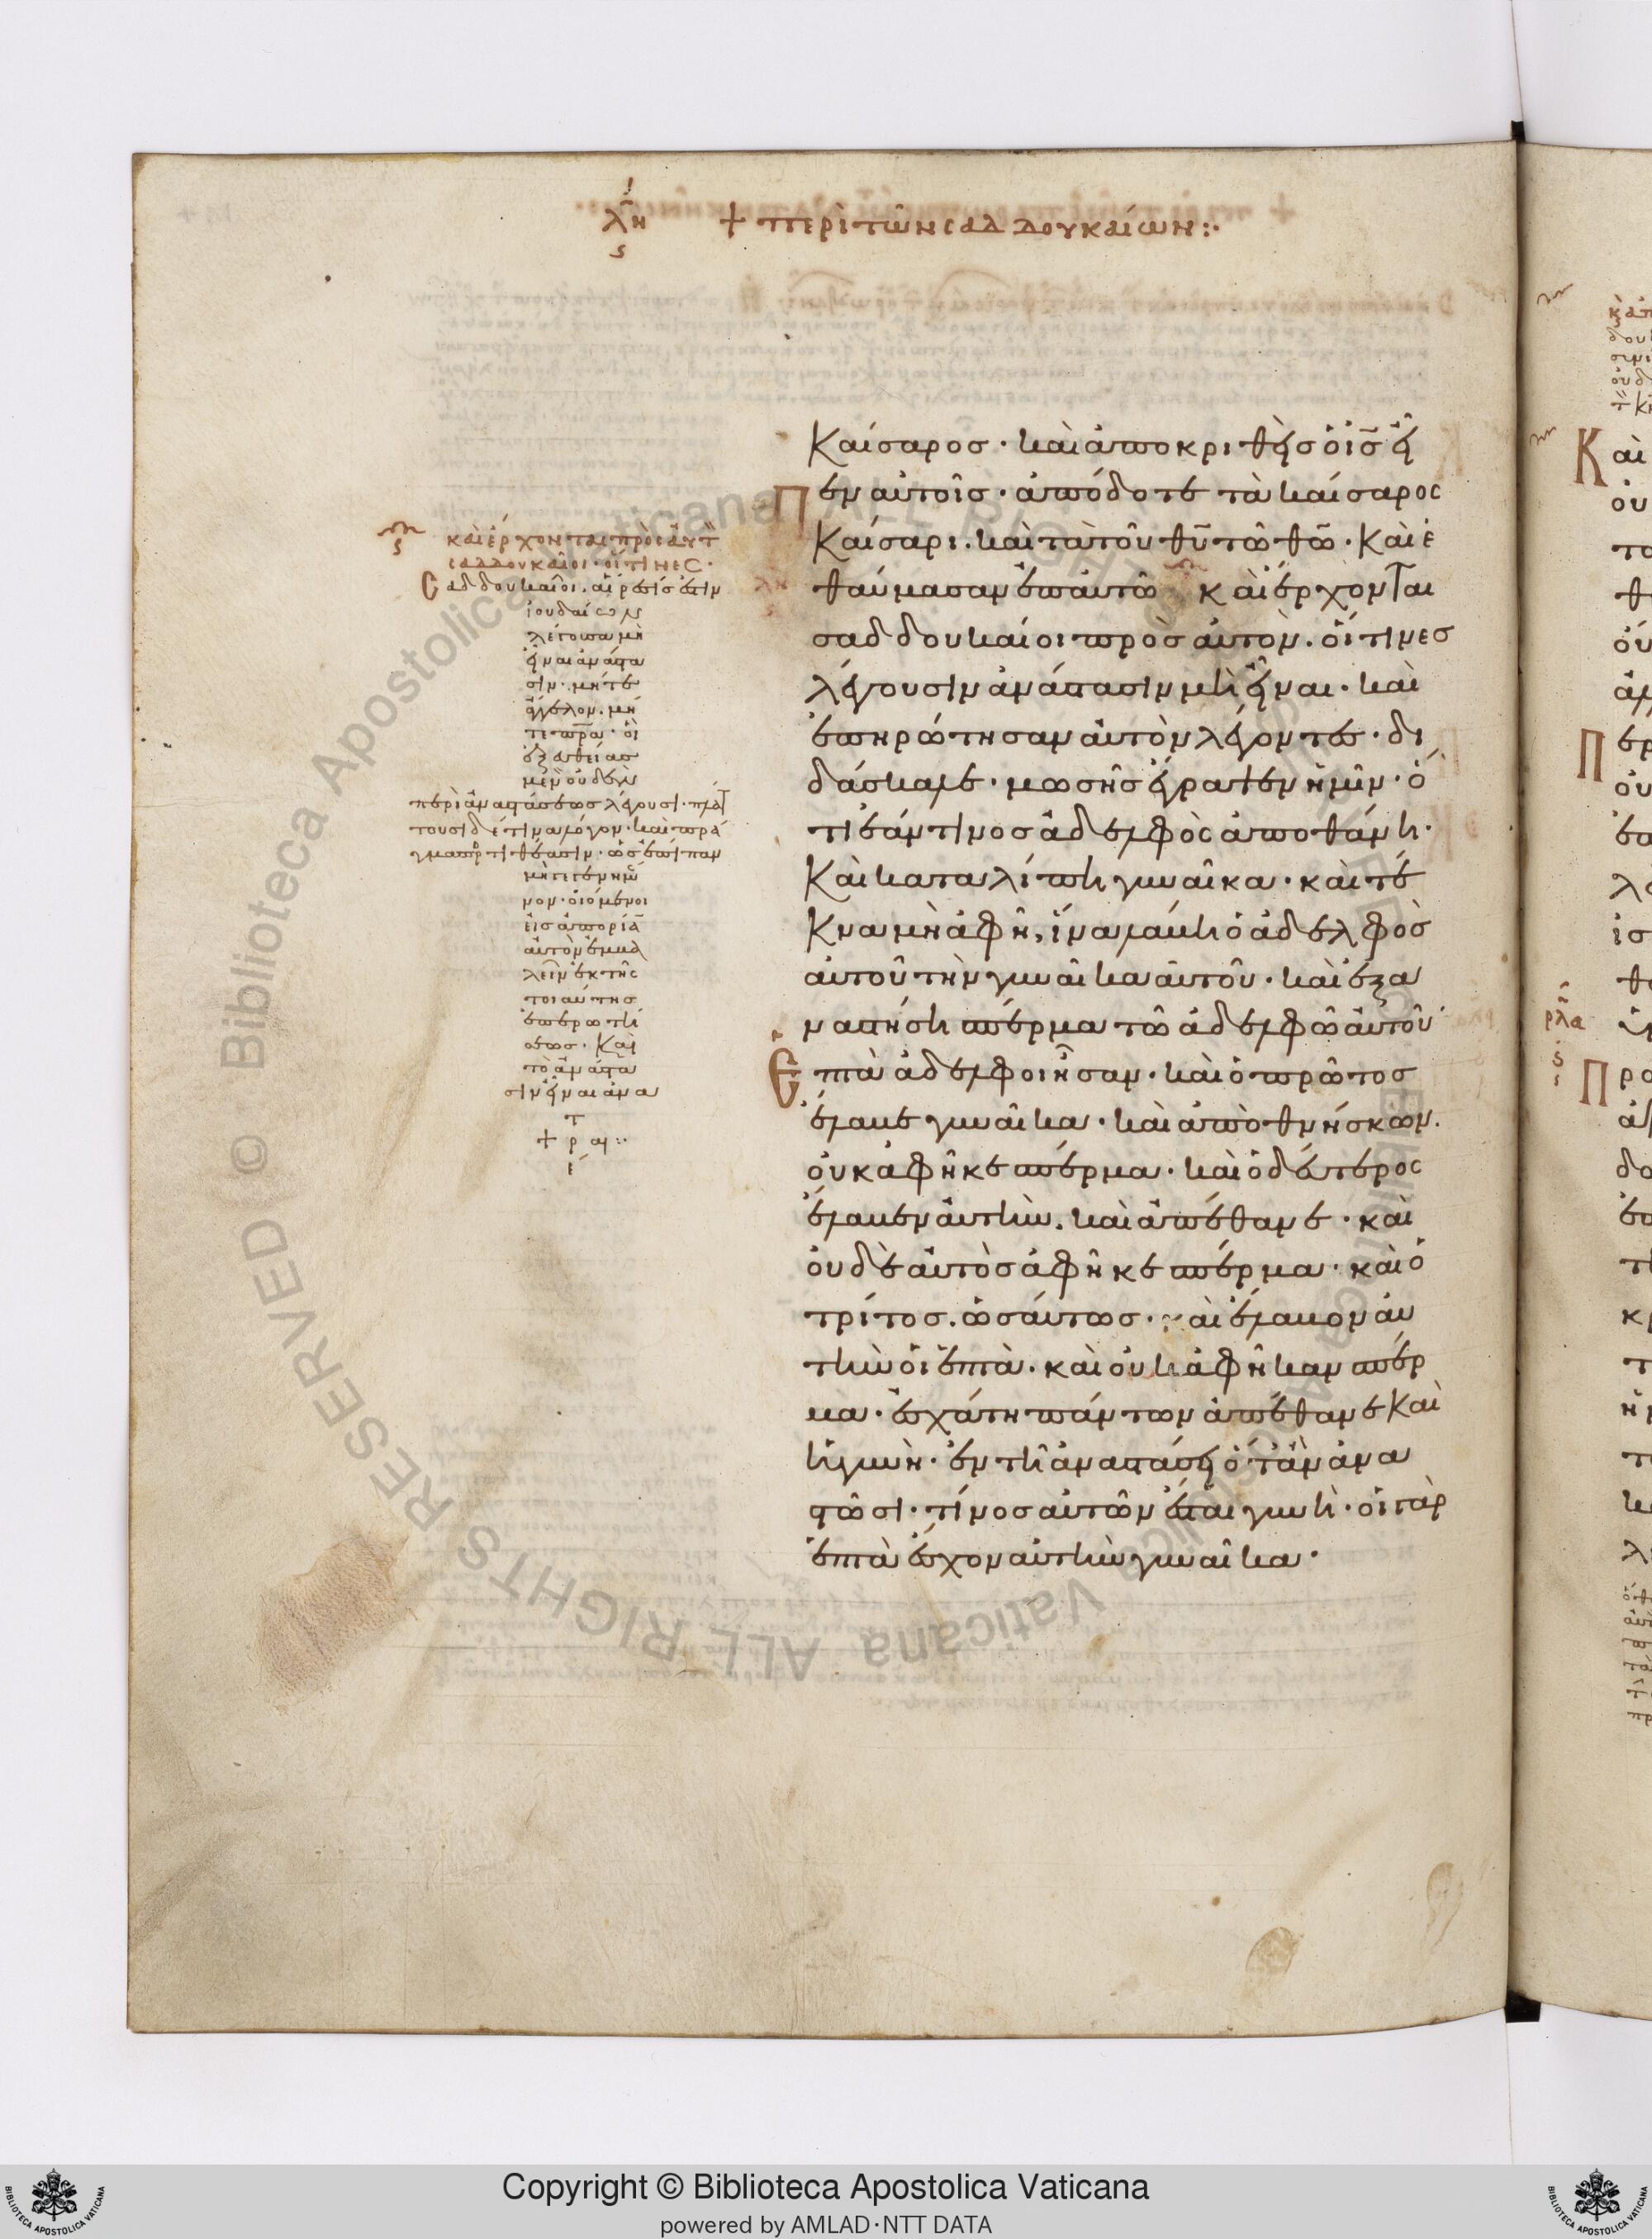 λη + περὶ τῶν σαδδουκαίων :·
ς
Καίσαροσ · καὶ ἀποκριθεὶσ ὁ ισ̅ εἶ
πεν αὐτοῖσ · ἀπόδοτε τὰ καίσαρος
Καίσαρι . καὶ τὰ τοῦ θυ̅ τῶ θω̅ · Καὶ ἐ
θαύμασαν ἐπ αυτῶ καὶ ἔρχονται
σαδδουκαίοι πρὸσ αὐτὸν . οἵτινεσ
λέγουσιν ἀνάστασιν μὴ εἶναι · καὶ
ἐπηρώτησαν αὐτὸν λέγοντεσ · δι
δάσκαλε · μωσῆσ ἔγραψεν ἡμῖν · ὅ
τι ἐάν τινοσ ἀδελφὸς ἀποθάνη ·
Καὶ καταλίπη γυναῖκα · καὶ τέ
Κνα μὴ ἀφῆ, ἵνα λάβη ὁ ἀδελφὸσ
αὐτοῦ τὴν γυναῖκα αὐτοῦ · καὶ ἐξα
ναστήση σπέρμα τῶ ἀδελφῶ αὐτοῦ
Ἑπτὰ ἀδελφοι ἦσαν · καὶ ὁ πρῶτοσ
ἔλαβε γυναῖκα · καὶ ἀποθνήσκων .
οὐκ ἀφῆκε σπέρμα · καὶ ὁ δεύτερος
ἔλαβεν αὐτὴν . καὶ ἀπέθανε · καὶ
οὐδὲ αὐτὸσ ἀφῆκε σπέρμα · καὶ ὁ
τρίτοσ . ὡσάυτωσ · καὶ ἔλαβον άυ
τὴν οἱ ἑπτὰ . καὶ οὐκ ἀφῆκαν σπέρ
μα · ἐσχάτη πάντων ἀπέθανε Καὶ
ἡ γυνὴ · ἐν τῆ ἀναστάσει ὅταν ἀνα
στῶσι · τίνοσ αὐτῶν ἔσται γυνὴ · οἱ γὰρ
ἑπτὰ ἔσχον αὐτὴν γυναῖκα ·
καὶ ἔρχονται πρὸς αὐτ
σαδδουκαῖοι · οἵτινες ·
Cαδδουκαῖοι . αἵρεσίσ ἐστιν
ἰουδαίων
λέγουσα μὴ
εἶναι ἀνάστα
σιν · μήτε
ἄγγελον . μή
τε πν̅α · οἱ
μὲν οὐδὲν
περὶ ἀναστάσεωσ λέγουσι · πλάτ
τουσι δέ τινα λόγον · καὶ πρᾶ
γμα συντιθέασιν · ὡσ ἐγὼ εἶπαν
μὴ γεγενημέ
νον · οἰόμενοι
εἰσ ἀπορίαν
αὐτὸν ἐμβα
λεῖν ἐκ τῆς
τοιαύτησ
ἐπερωτή
σεωσ · Καὶ
τὸ ἀνάστα
σιν εἶναι ἀνα
τ
+ ρ αι :·
ί
Copyright © Biblioteca Apostolica Vaticana
powered by AMLAD·NTT DATA
Biblioteca Apostolica Vaticana ALL RIGHTS RESERVED ©